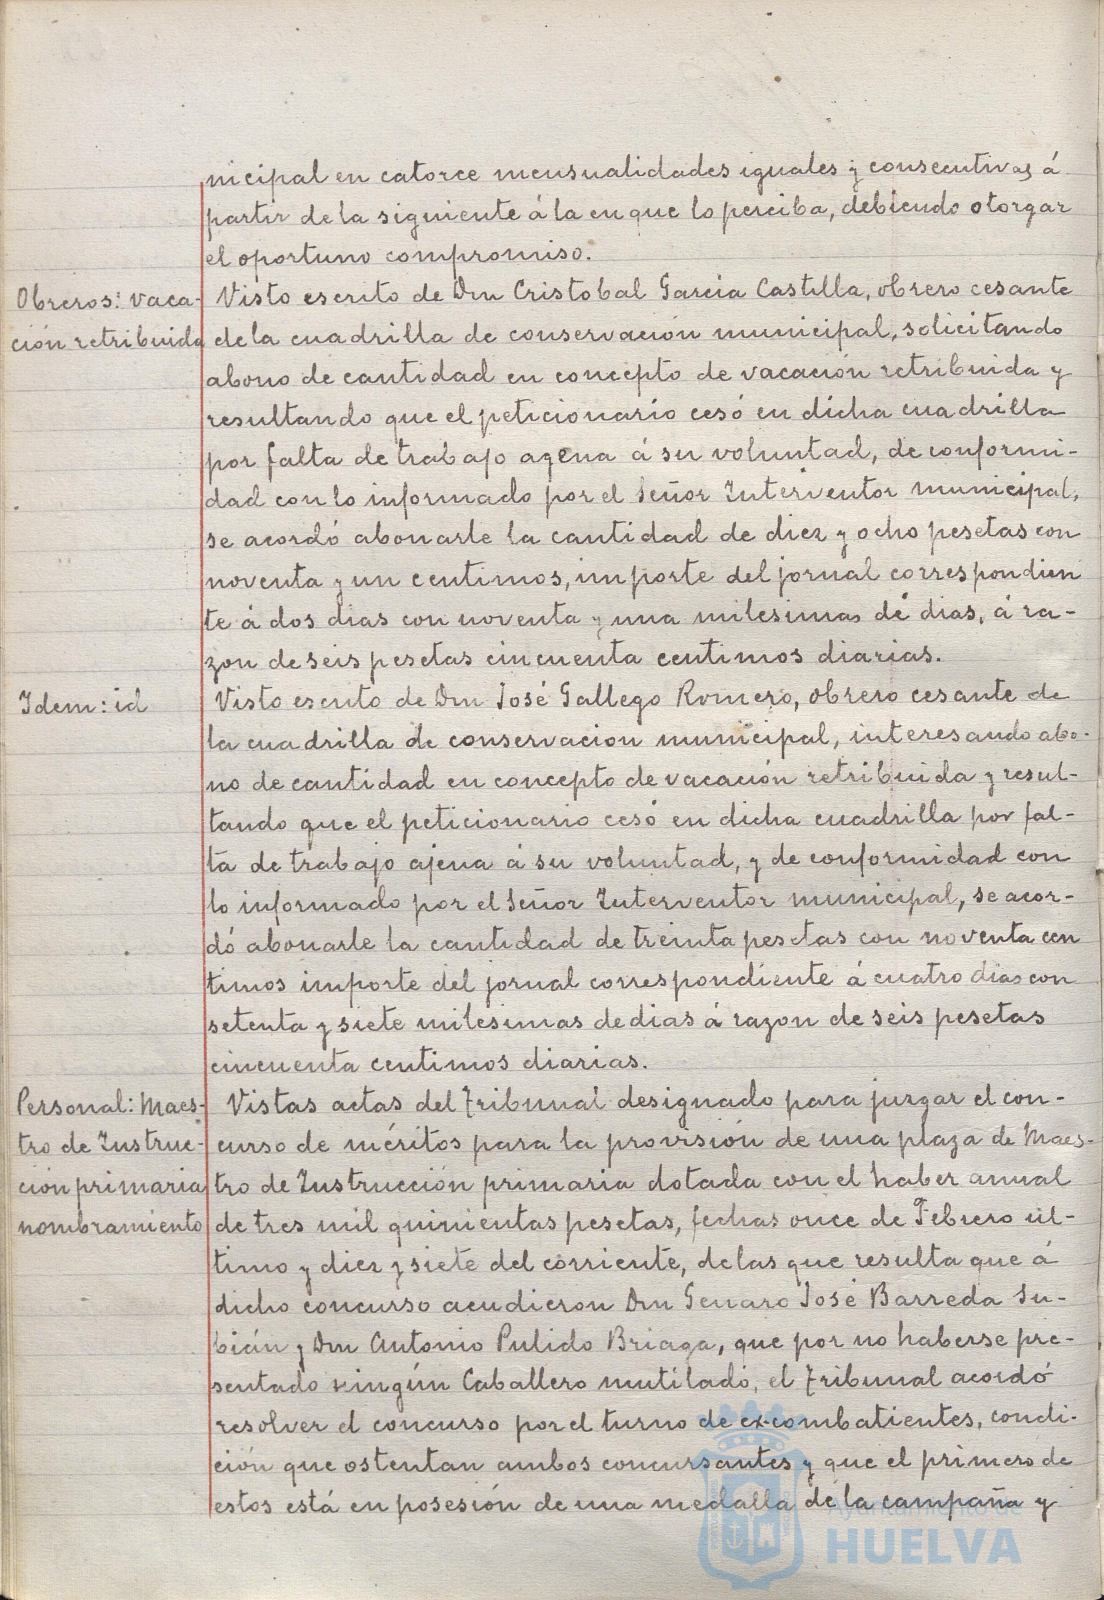 nicipal en catorce mensualidades iguales y consecutivas á
partir de la siguiente á la en que lo perciba, debiendo otorgar
el oportuno compromiso.
Obreros: vaca-
ción retribuida
Visto escrito de Don Cristobal García Castilla, obrero cesante
de la cuadrilla de conservación municipal, solicitando
abono de cantidad en concepto de vacación retribuida y
resultando que el peticionario cesó en dicha cuadrilla
por falta de trabajo agena á su voluntad, de conformi-
dad con lo informado por el Señor Interventor municipal,
se acordó abonarle la cantidad de diez y ocho pesetas con
noventa y un centimos, importe del jornal correspondien
te á dos dias con noventa y una milesimas de dias, á ra-
zon de seis pesetas cincuenta centimos diarias.
Idem: id
Visto escrito de Don José Gallego Romero, obrero cesante de
la cuadrilla de conservacion municipal, interesando abo-
no de cantidad en concepto de vacación retribuida y resul-
tando que el peticionario cesó en dicha cuadrilla por fal-
ta de trabajo ajena á su voluntad, y de conformidad con
lo informado por el Señor Interventor municipal, se acor-
dó abonarle la cantidad de treinta pesetas con noventa cen
timos importe del jornal correspondiente á cuatro dias con
setenta y siete milesimas de dias á razon de seis pesetas
cincuenta centimos diarias.
Personal: Maes-
tro de Instruc-
ción primaria
nombramiento
Vistas actas del Tribunal designado para juzgar el con-
curso de méritos para la provisión de una plaza de Maes-
tro de Instrucción primaria dotada con el haber anual
de tres mil quinientas pesetas, fechas once de Febrero úl-
timo y diez y siete del corriente, de las que resulta que á
dicho concurso acudieron Don Genaro José Barreda Su-
bián y Don Antonio Pulido Briaga, que por no haberse pre-
sentado ningún Caballero mutilado, el Tribunal acordó
resolver el concurso por el turno de ex-combatientes, condi-
ción que ostentan ambos concursantes y que el primero de
estos está en posesión de una medalla de la campaña y
Ayuntamiento de
HUELVA